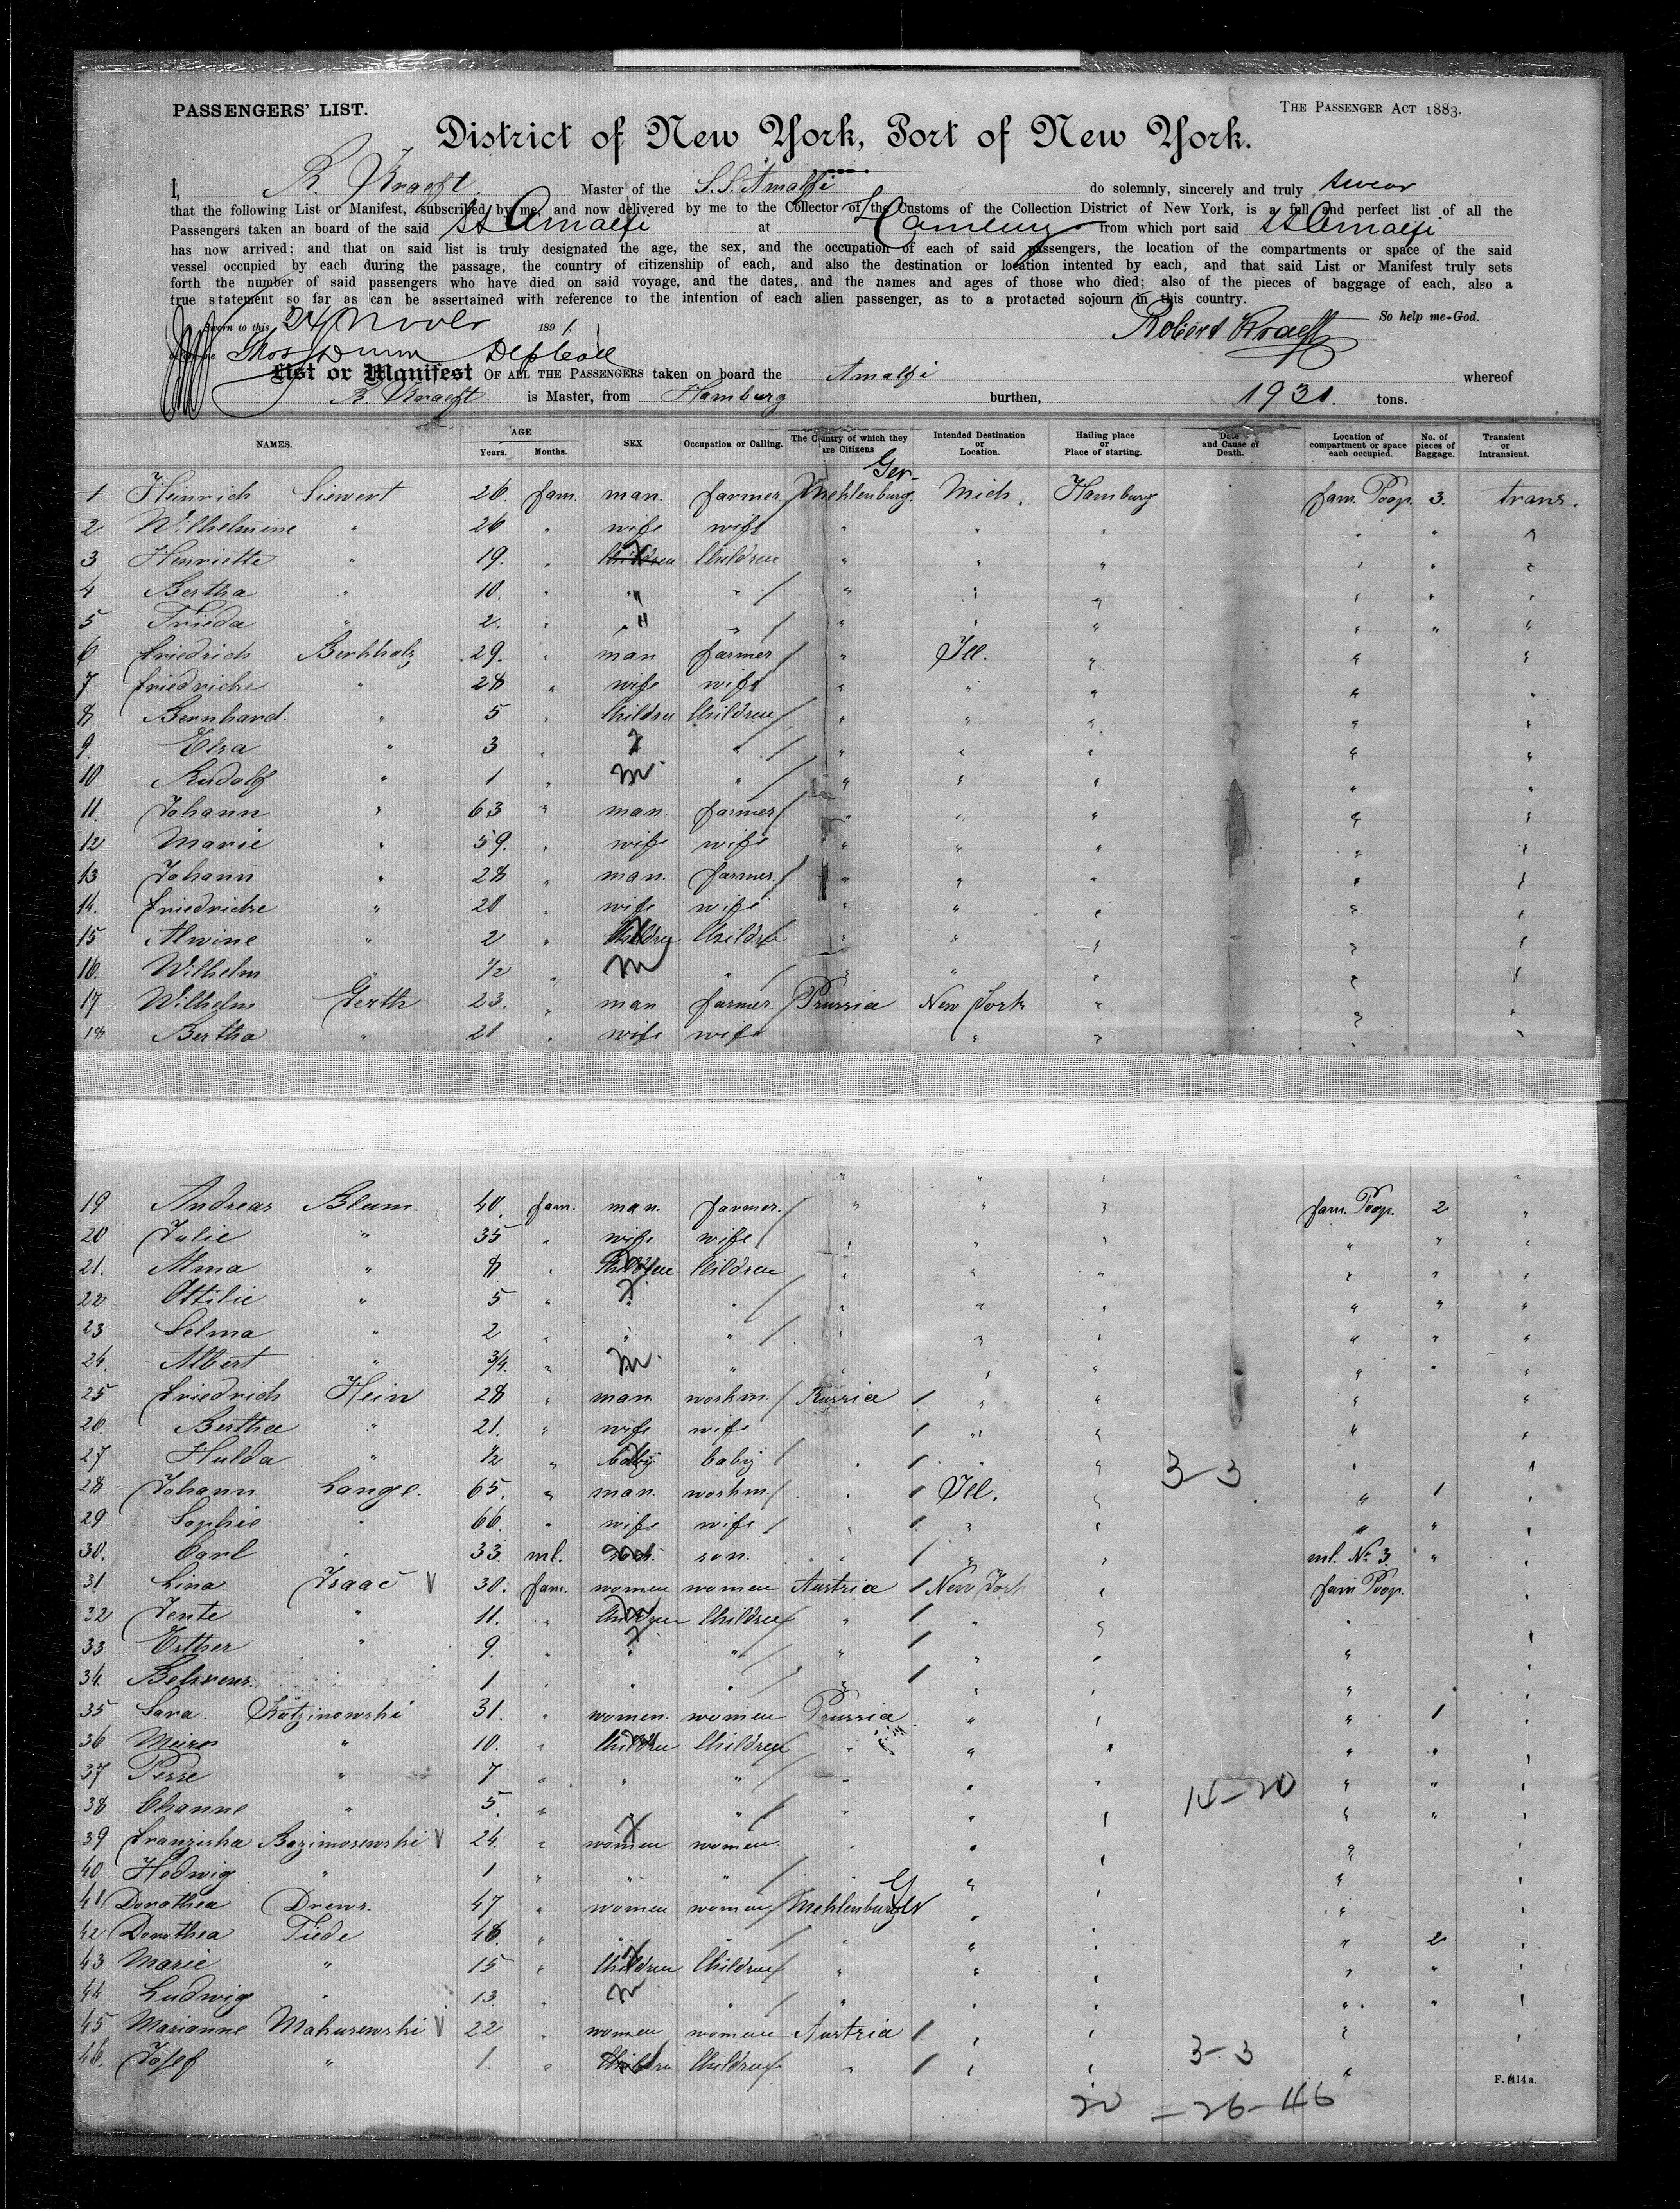 PASSENGERS' LIST.
THE PASSENGER ACT 1883.
District of New York, Port of New York.
I, R. Kraefft Master of the S.S. Amalfi do solemnly, sincerely and truly swear
that the following List or Manifest, subscribed by me, and now delivered by me to the Collector of the Customs of the Collection District of New York, is a full and perfect list of all the
Passengers taken an board of the said SS Amalfi at Hamburg from which port said SS Amalfi
has now arrived; and that on said list is truly designated the age, the sex, and the occupation of each of said passengers, the location of the compartments or space of the said
vessel occupied by each during the passage, the country of citizenship of each, and also the destination or location intented by each, and that said List or Manifest truly sets
forth the number of said passengers who have died on said voyage, and the dates, and the names and ages of those who died; also of the pieces of baggage of each, also a
true statement so far as can be assertained with reference to the intention of each alien passenger, as to a protacted sojourn in this country.
So help me-God.
Sworn to this 24 Novbr 1891
Robert Kraefft
Thos Dunn Dep Coll
List or Manifest OF ALL THE PASSENGERS taken on board the Amalfi whereof
R. Kraefft is Master, from Hamburg burthen, 1931. tons.
NAMES. AGE Years. Months. SEX Occupation or Calling. The Country of which they are Citizens Intended Destination or Location. Hailing place or Place of starting. Date and Cause of Death. Location of compartment or space each occupied. No. of pieces of Baggage. Transient or Intransient.
Ger.
1 Heinrich Siewert 26. fam. man. farmer Mehlenburg. Mich. Hamburg fam. Poop. 3. trans.
2 Wilhelmine " 26 " wife wife " " " " " "
3 Henriette " 19. " Children Children " " " " " "
4 Bertha " 10. " " " " " " " " "
5 Frieda " 2. " " " " " " " " "
6 Friedrich Berkholz 29. " man farmer " Ill. " " "
7 Friedricke " 28 " wife wife " " " " "
8 Bernhard. " 5 " Children Children " " " " "
9. Elsa " 3 " " " " " " " "
10 Rudolf " 1 " m " " " " " "
11. Johann " 63 " man farmer " " " " "
12 Marie " 59. " wife wife " " " " "
13 Johann " 28 " man. farmer. " " " " "
14. Friedricke " 28 " wife wife " " " " "
15 Alwine " 2 " Children Children " " " " "
16. Wilhelm " 1/2 " m " " " " " "
17 Wilhelm Gerth 23. " man farmer. Prussia New York " " "
18 Bertha " 21 " wife wife " " " "
19 Andreas Blum. 40. fam. man. farmer. " " " fam. Poop. 2 "
20 Julie " 35 " wife wife " " " " " "
21. Alma " 8 " Children Children " " " " " "
22 Ottilie " 5 " " " " " " " " "
23 Selma " 2 " " " " " " " " "
24. Albert " 3/4. " m " " " " " " "
25 Friedrich Hein 28 " man workm. Russia " " " "
26. Bertha " 21. " wife wife " " " "
27 Hulda " 1/2 " baby baby " " " 3-3 " "
28 Johann Lange. 65. " man. workm. " Ill. " " 1 "
29 Sophie " 66. " wife wife " " " " " "
30. Carl " 33. ml. son. " " " ml. No. 3. " "
31 Lina Isaac V 30. fam. women women Austria New York " fam Poop. "
32 Jente " 11. " Children Children " " " " "
33 Esther " 9. " " " " " " " "
34. 1 " " " " " " " "
35 Sara. Katzinowski 31. " women. women Prussia " " " 1 "
36 " 10. " Children Children " " " " " "
37 Pesse " 7 " " " " " " " " "
38 Channe " 5. " " " " " " 14-20 " " "
39 Franziska V 24. " women women. " " " "
40 Hedwig " 1 " " " " " " " "
41 Dorothea Drews. 47 " women women Mehlenburg Ger " " " "
42 Dorothea Tiede 48. " " " " " " " 2 "
43 Marie " 15 " Children Children " " " " " "
44 Ludwig " 13. " m " " " " " " "
45 Marianne Makurewski V 22 " women women Austria " " " "
46. Josef " 1. " Children Children " " " 3-3 "
F. 414a.
20 = 26-46